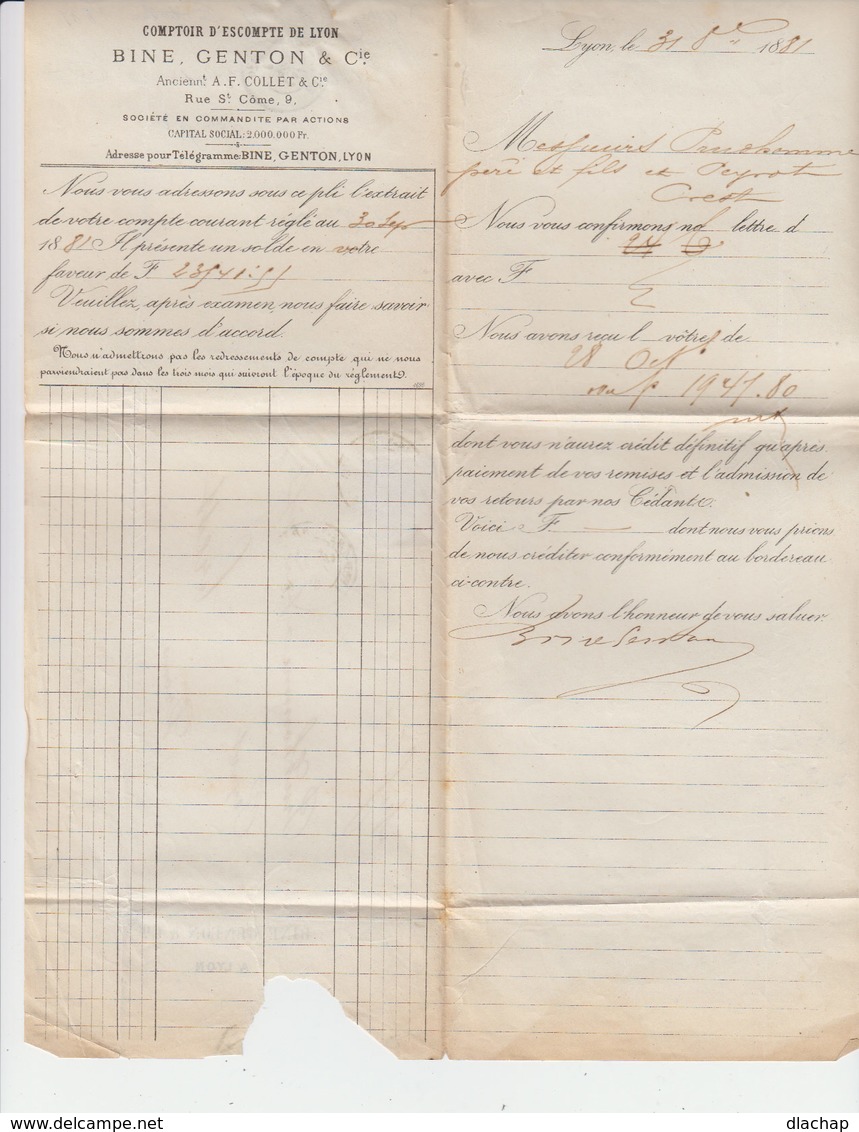 COMPTOIR D'ESCOMPTE DE LYON
BINE, GENTON & Cie.
Ancienn.t A.F. COLLET & Cie
Rue St. Côme, 9.
SOCIÉTÉ EN COMMANDITE PAR ACTIONS
CAPITAL SOCIAL: 2.000.000 Fr.
Adresse pour Télégramme: BINE, GENTON, LYON
Nous vous adressons sous ce pli l'extrait
de votre compte courant réglé au 30 Sep
1881 Il présente un solde en votre
faveur de F 23541.55
Veuillez, après examen, nous faire savoir
si nous sommes d'accord.
Nous n'admettrons pas les redressements de compte qui ne nous
parviendraient pas dans les trois mois qui suivront l'époque du réglement.
Lyon, le 31 8bre 1881
Messieurs Prudhomme
père et fils et Peyrot
Crest
Nous vous confirmons no lettre d
avec F
Nous avons reçu l vôtre de
28 Oct
1947.80
dont vous n'aurez crédit définitif qu'après
paiement de vos remises et l'admission de
vos retours par nos Cédants.
Voici F — dont nous vous prions
de nous créditer conformément au bordereau
ci-contre.
Nous avons l'honneur de vous saluer.
Bine Genton
A LYON
dlachap